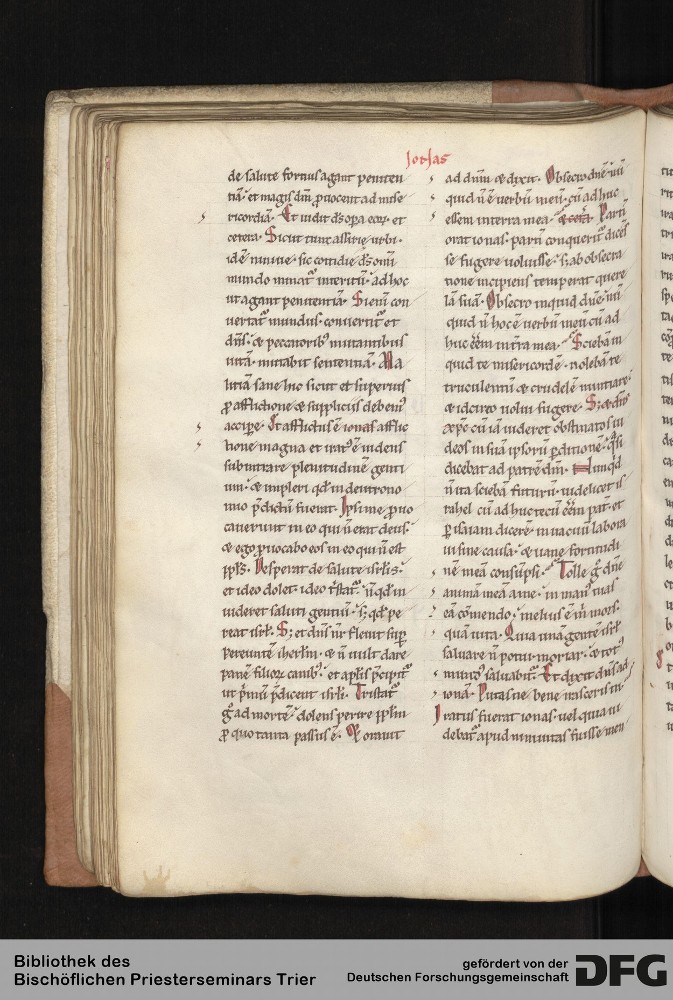 Jonas
de salute fortius agant peniten
tiā· et magis dm̄ ꝓuocent ad mise
ricordiā· Et uidit ds̄ opa eoꝝ· et
cetera· Sicut tunc assirie urbi·
idē niniue· sic cottidie ds̄ omī
mundo minat᷑ interitū· ad hoc
ut agant penitentiā· Si enī con
uertat᷑ mundus· conuertit᷑ et
dn̄s· & peccatorib; mutantibus
uitā· mutabit sententiā· Ma
litiā sane hic sicut et superius
ꝓ afflictione & suppliciis debem᷒
accipe· Et afflictus ē ionas afflic
tione magna et irat᷒ ē uidens
subintrare plenitudinē genti
um· & impleri qd̄ in deutrono
mio p̄dictū fuerat· Ipsi me ꝓuo
cauerunt in eo qui n̄ erat deus·
& ego ꝓuocabo eos in eo qui n̄ est
ppl̄s· Desperat de salute isrl̄is·
et ideo dolet· ideo t᷑stat᷑· n̄ qd̄ in
uideret saluti gentiū· s; qd̄ pe
reat isrl̄· S; et dn̄s nr̄ fleuit sup
pereuntē iherlm̄· & n̄ uult dare
panē filioꝝ canib᷒· et apl̄is p̄cipit᷑
ut p̄mū p̄dicent isrl̄i· Tristat᷑
g̊ ad mortē· dolens perire ppl̄m
ꝓ quo tanta passus ē· Et orauit
ad dnm̄ & dixit· Obsecro dn̄e· nū
quid n̄ ē uerbū meū· cū ad huc
essem in terra mea· & cetā· Partū
orat ionas· partī conquerit᷑ dicēs
se fugere uoluisse· s; ab obsecra
tione incipiens temperat quere
lā suā· Obsecro inquid dn̄e· nū
quid n̄ hoc ē uerbū meū cū ad
huc eēm in tr̄a mea· Sciebā in
quid te misericordē· nolebā te
truculentū & crudelē nuntiare·
& idcirco uolui fugere· S; & dn̄s
xp̄c cū iā uideret obstinatos iu
deos in suā ipsorū ꝑditionē· q̄si
dicebat ad patrē dm̄· Nunqd̄
n̄ ita sciebā futurū· uidelicet is
rahel cū ad huc tecū eēm pat᷑· et
ꝑ isaiam dicerē· in uacuū labora
ui sine causa· & uane fortitudi
nē meā consūpsi· Tolle g̊ dn̄e
animā meā a me· in man᷒ tuas
eā cōmendo· melius ē m̄ mors·
quā uita· Quia unā gentē isrl̄
saluare n̄ potui· moriar· & tot᷒
mund᷒ saluabit᷑· Et dixit dn̄s ad
ionā· Putasne bene irasceris tu·
Iratus fuerat ionas· uel quia ui
debat᷑ apud niniuitas fuisse men
Bibliothek des
Bischöflichen Priesterseminars Trier
gefördert von der
Deutschen Forschungsgemeinschaft
DFG